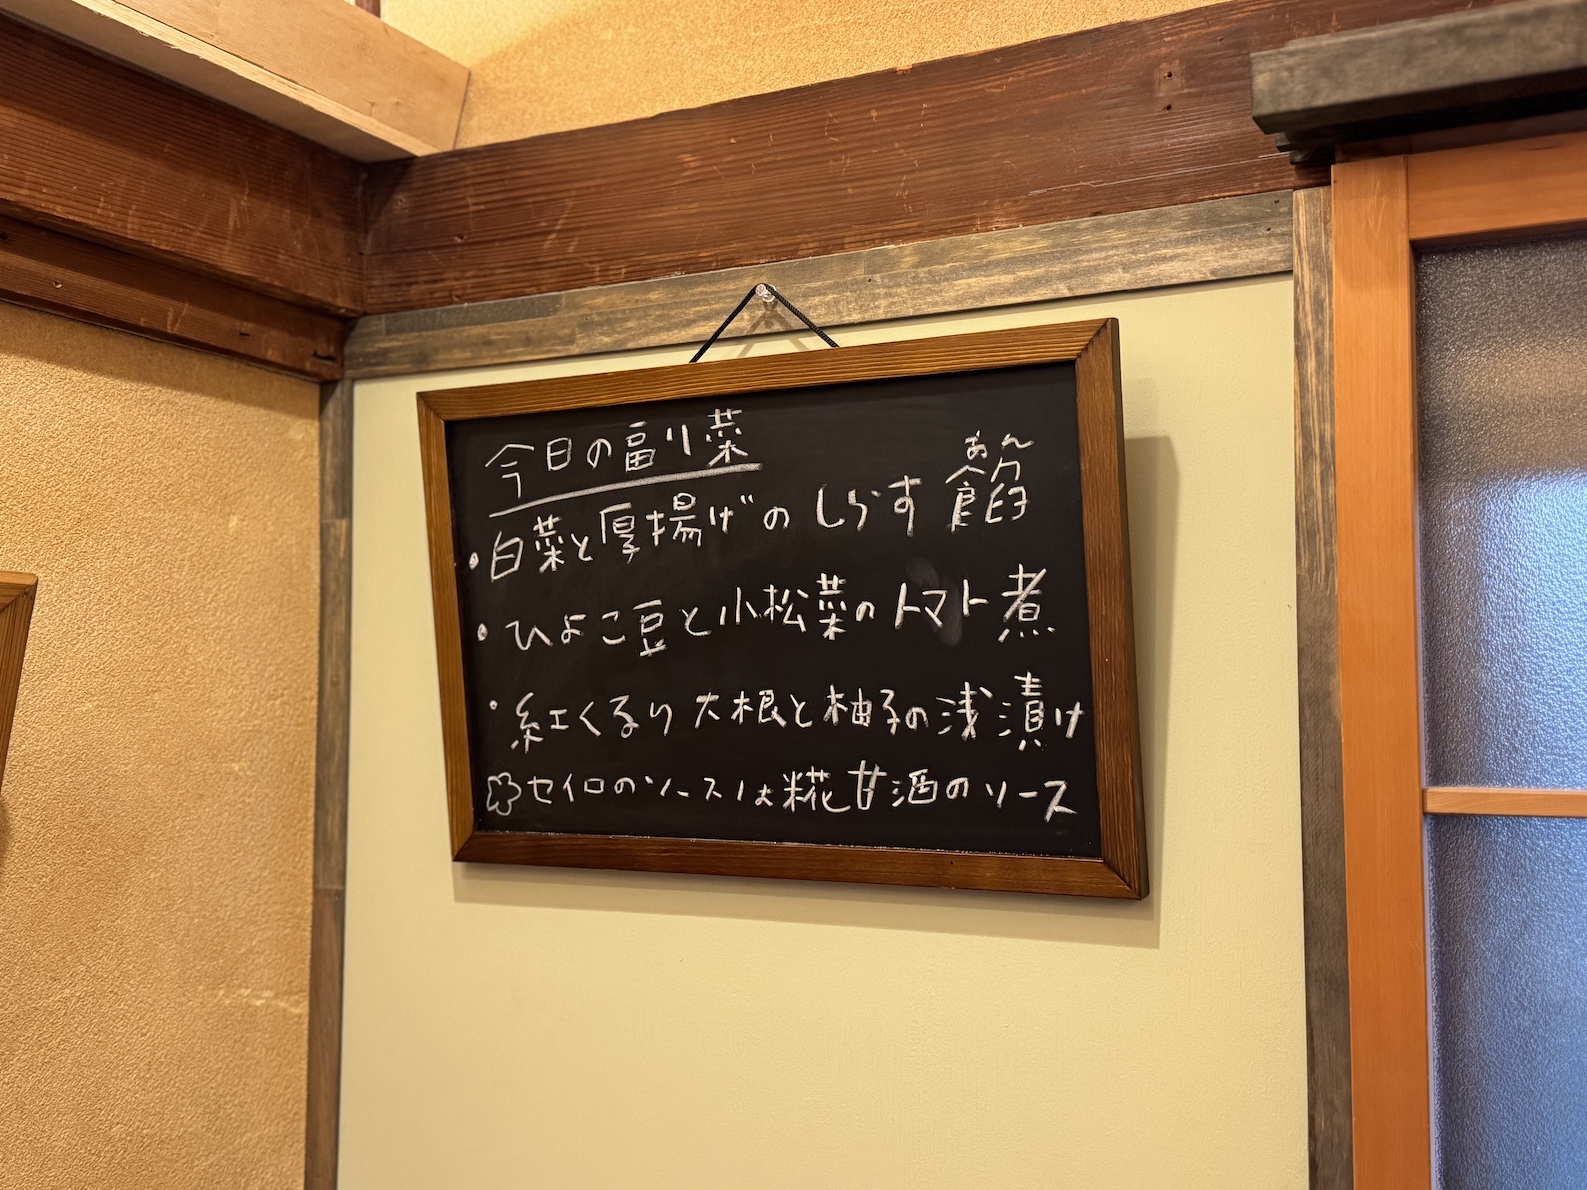 今日の副菜
・白菜と厚揚げのしらす餡
あん
・ひよこ豆と小松菜のトマト煮
・紅くるり大根と柚子の浅漬け
セイロのソースは糀甘酒のソース